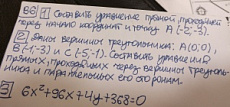 В6 1 Составить уравнение прямой, проходящей
через начало координат и точку А(-2;-3).
2 Даны вершины треугольника: А(0;0),
В(-1;-3) и С(-5;-1). Составить уравнения
прямых, проходящих через вершины треуголь-
ника и параллельных его сторонам.
3 6x²+96x+4y+368=0